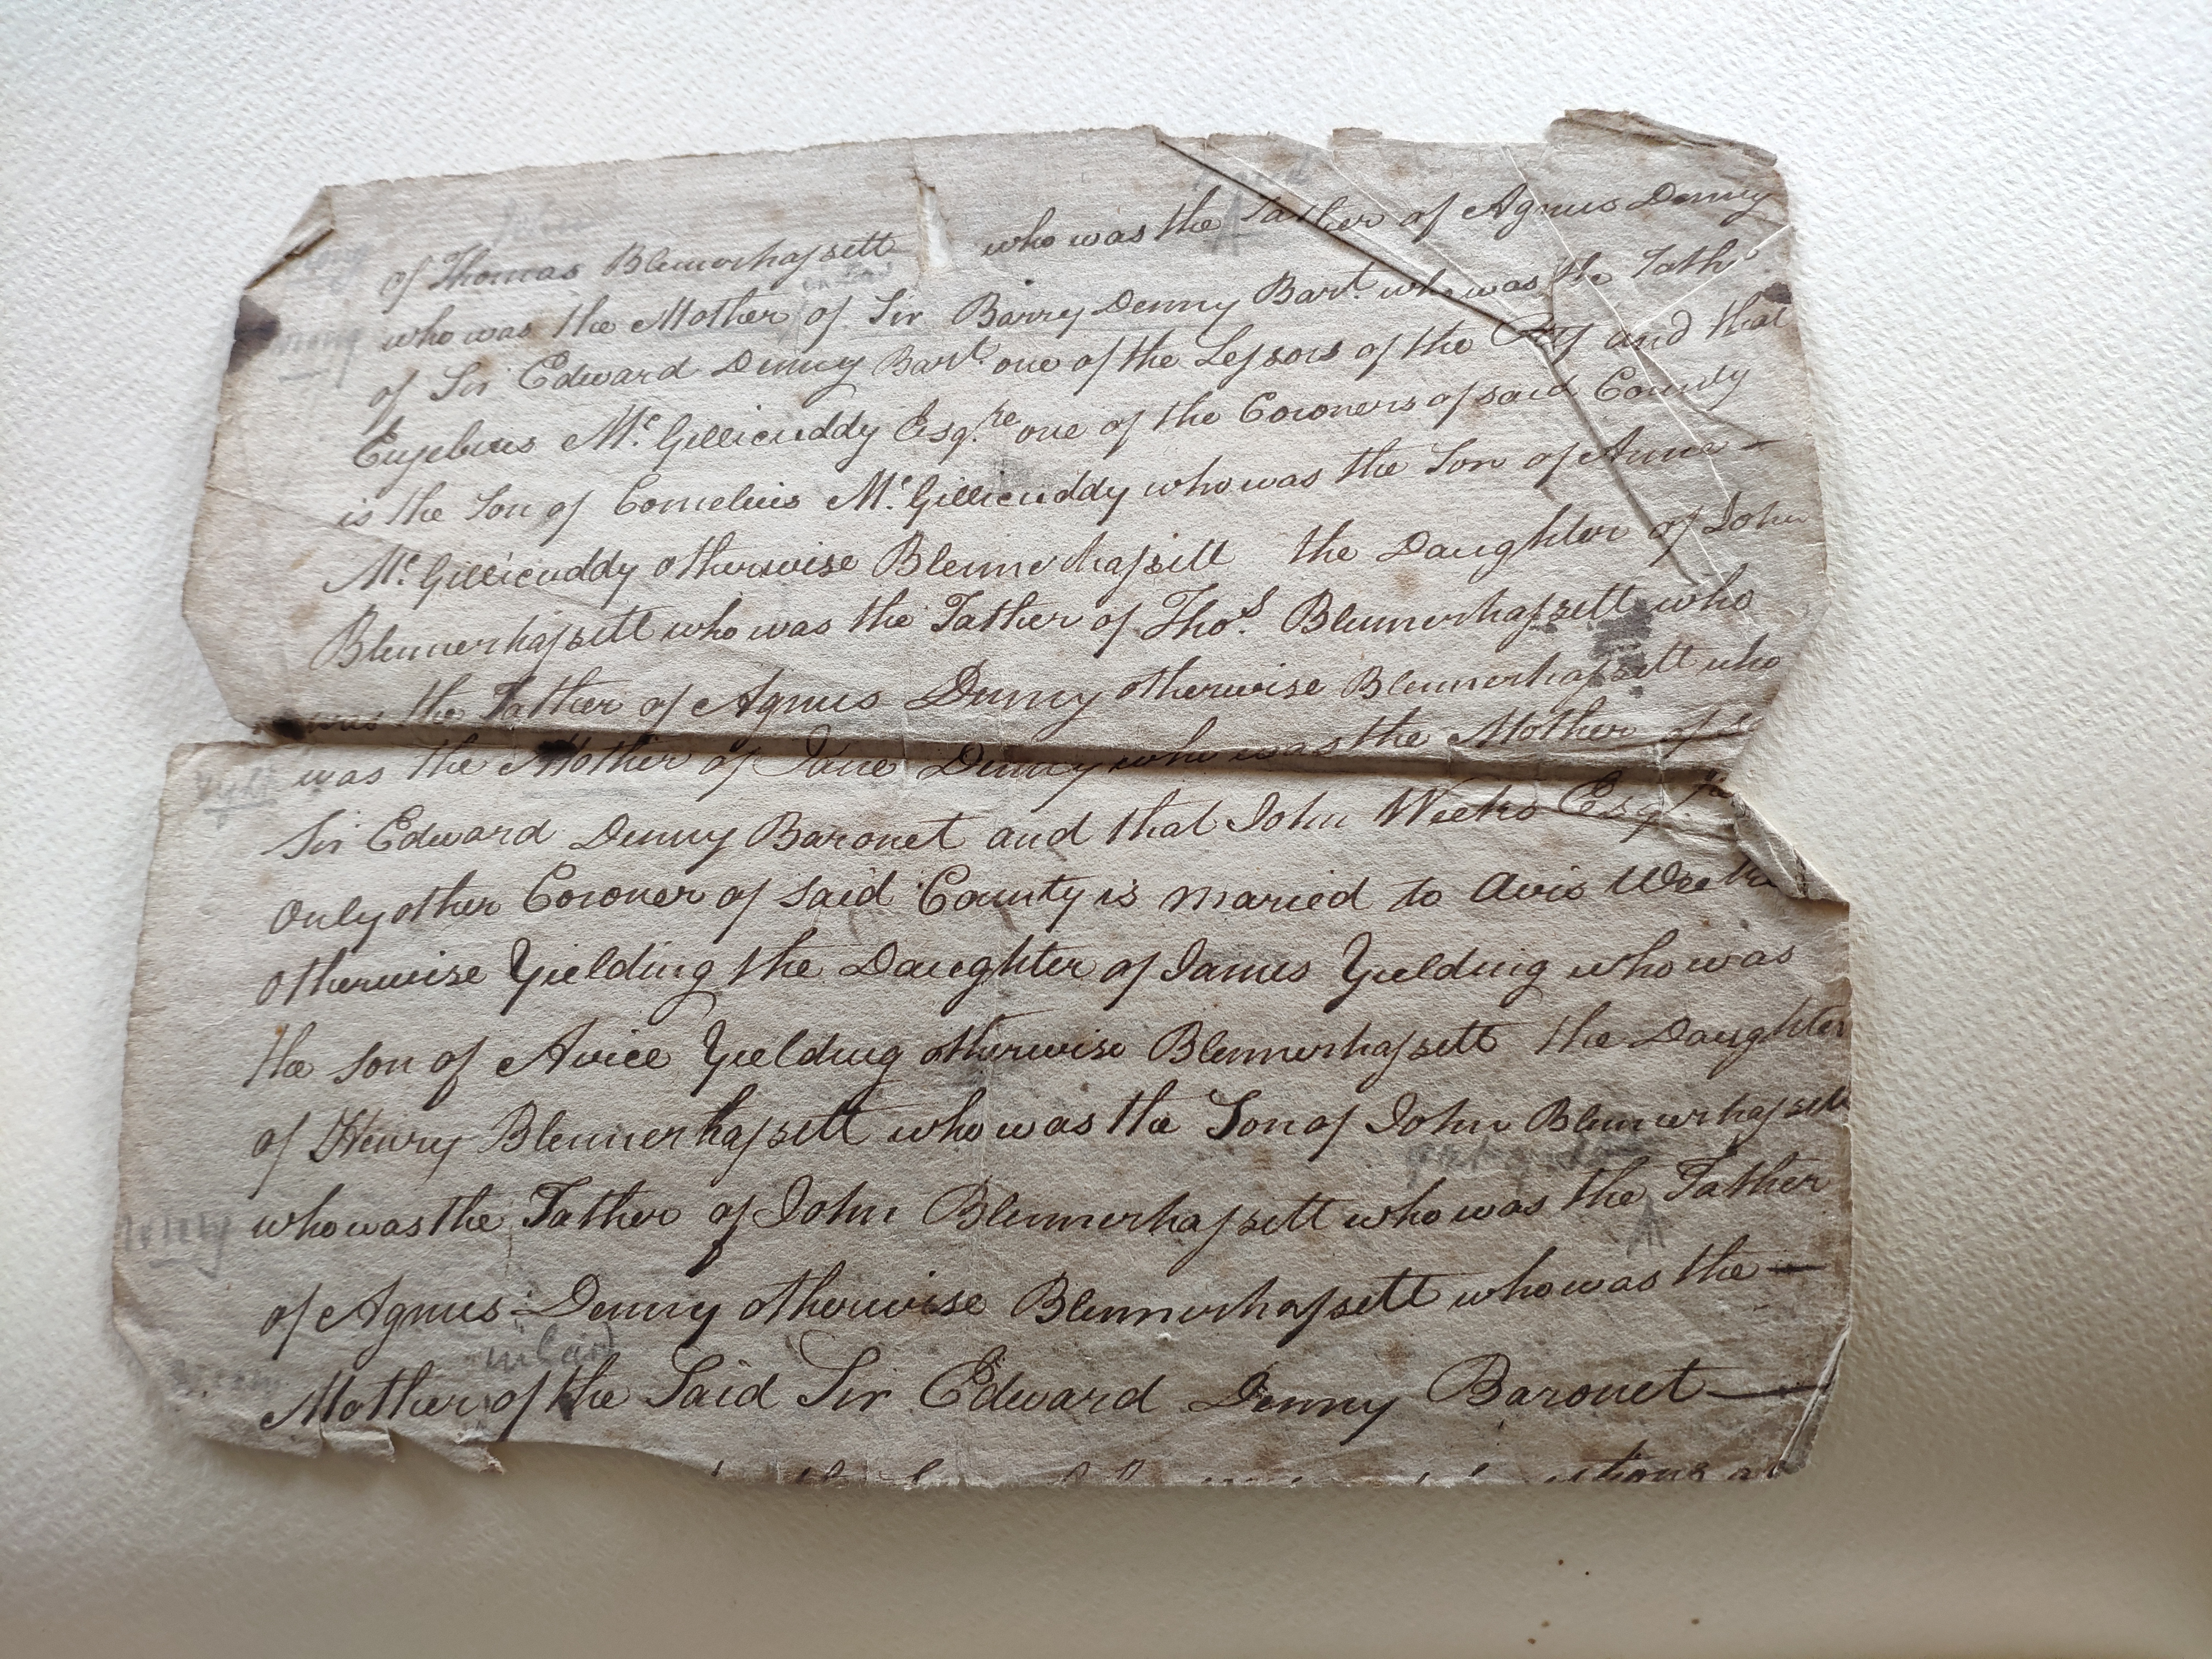 of Thomas Blennerhassett who was the Father of Agnus Denny
who was the Mother of Sir Barry Denny Bart. who was the Fath
of Sir Edward Denny Bart. one of the Lessors of the and that
Eusebius Mc. Gillicuddy Esqre. one of the Coroners of said County
is the Son of Cornelius Mc. Gillicuddy who was the Son of Anne —
Mc. Gillicuddy otherwise Blennerhassett the Daughter of John
Blennerhassett who was the Father of Thos. Blennerhassett who
was the Father of Agnus Denny otherwise Blennerhassett who
was the Mother of Jane Denny who was the Mother of
Sir Edward Denny Baronet and that John Weeks Esqr.
Only other Coroner of said County is maried to Avis Weeks
otherwise Yielding the Daughter of James Yielding who was
the son of Avice Yielding otherwise Blennerhassett the Daughter
of Henry Blennerhassett who was the Son of John Blennerhassett
who was the Father of John Blennerhassett who was the Father
of Agnus Denny otherwise Blennerhassett who was the —
Mother of the Said Sir Edward Denny Baronet —